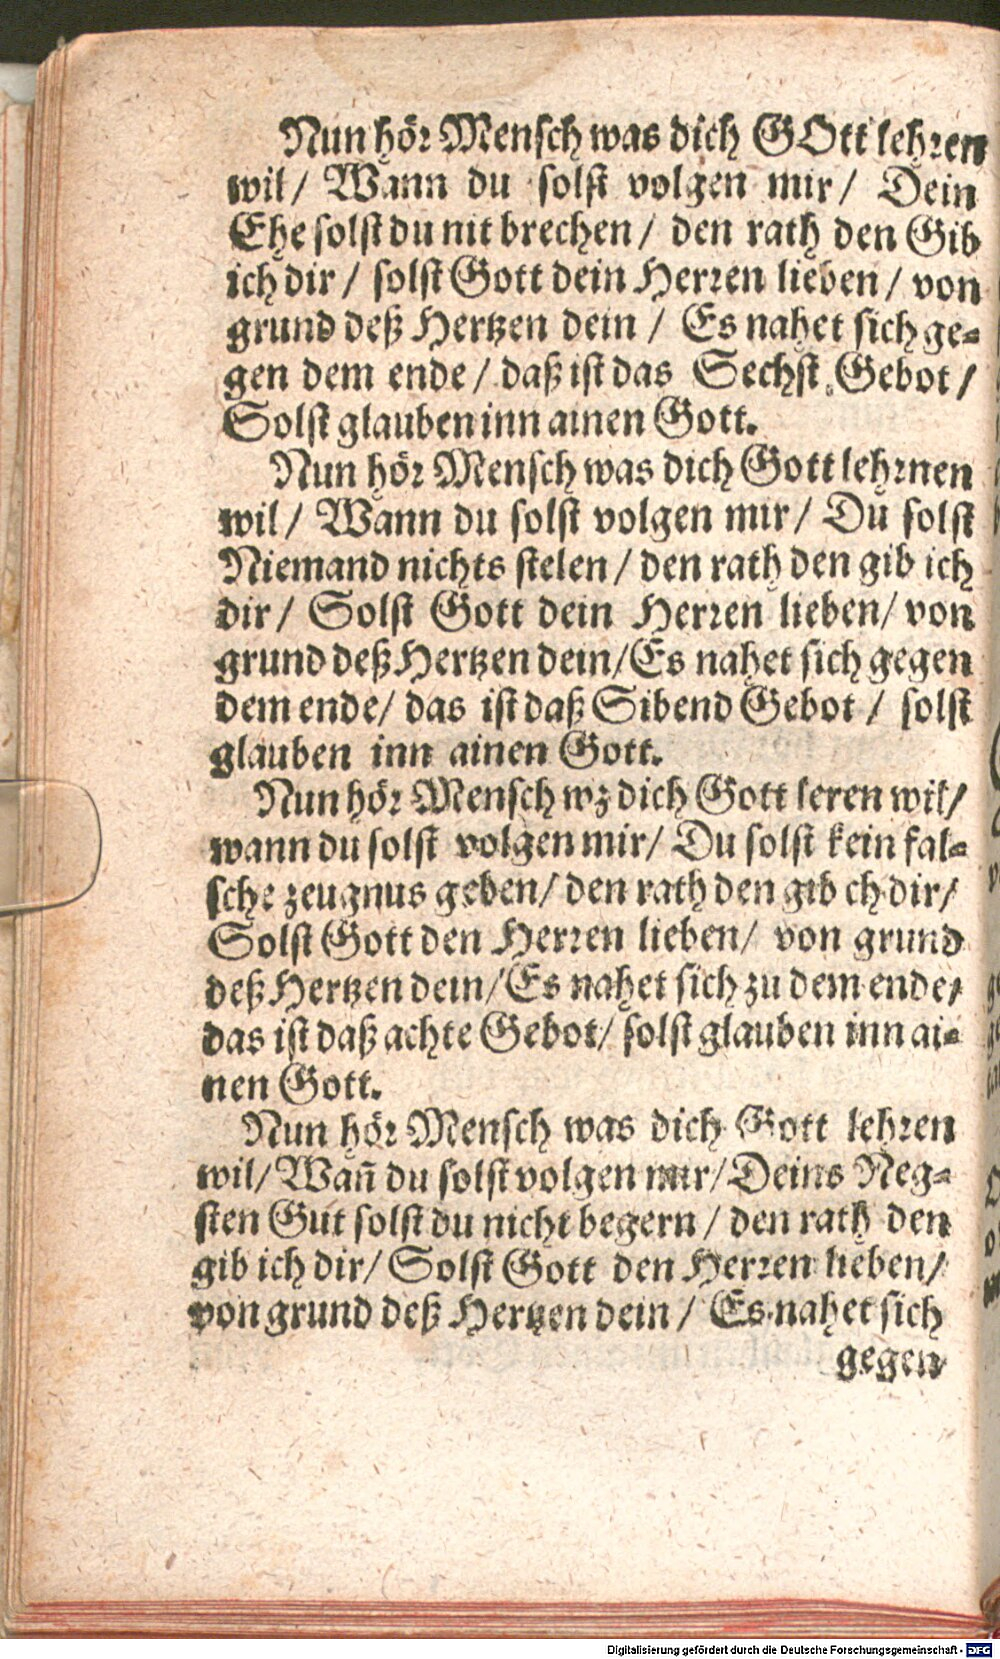 Nun hör Mensch was dich GOtt lehren
wil/ Wann du solst volgen mir/ Dein
Ehe solst du nit brechen/ den rath den Gib
ich dir/ solst Gott dein Herren lieben/ von
grund deß Hertzen dein/ Es nahet sich ge-
gen dem ende/ daß ist das Sechst Gebot/
Solst glauben inn ainen Gott.
Nun hör Mensch was dich Gott lehrnen
wil/ Wann du solst volgen mir/ Du solst
Niemand nichts stelen/ den rath den gib ich
dir/ Solst Gott dein Herren lieben/ von
grund deß Hertzen dein/ Es nahet sich gegen
dem ende/ das ist daß Sibend Gebot/ solst
glauben inn ainen Gott.
Nun hör Mensch wz dich Gott leren wil/
wann du solst volgen mir/ Du solst kein fal-
sche zeugnus geben/ den rath den gib ch dir/
Solst Gott den Herren lieben/ von grund
deß Hertzen dein/ Es nahet sich zu dem ende/
das ist daß achte Gebot/ solst glauben inn ai-
nen Gott.
Nun hör Mensch was dich Gott lehren
wil/ Wañ du solst volgen mir/ Deins Neg-
sten Gut solst du nicht begern/ den rath den
gib ich dir/ Solst Gott den Herren lieben/
von grund deß Hertzen dein/ Es nahet sich
gegen
Digitalisierung gefördert durch die Deutsche Forschungsgemeinschaft - DFG